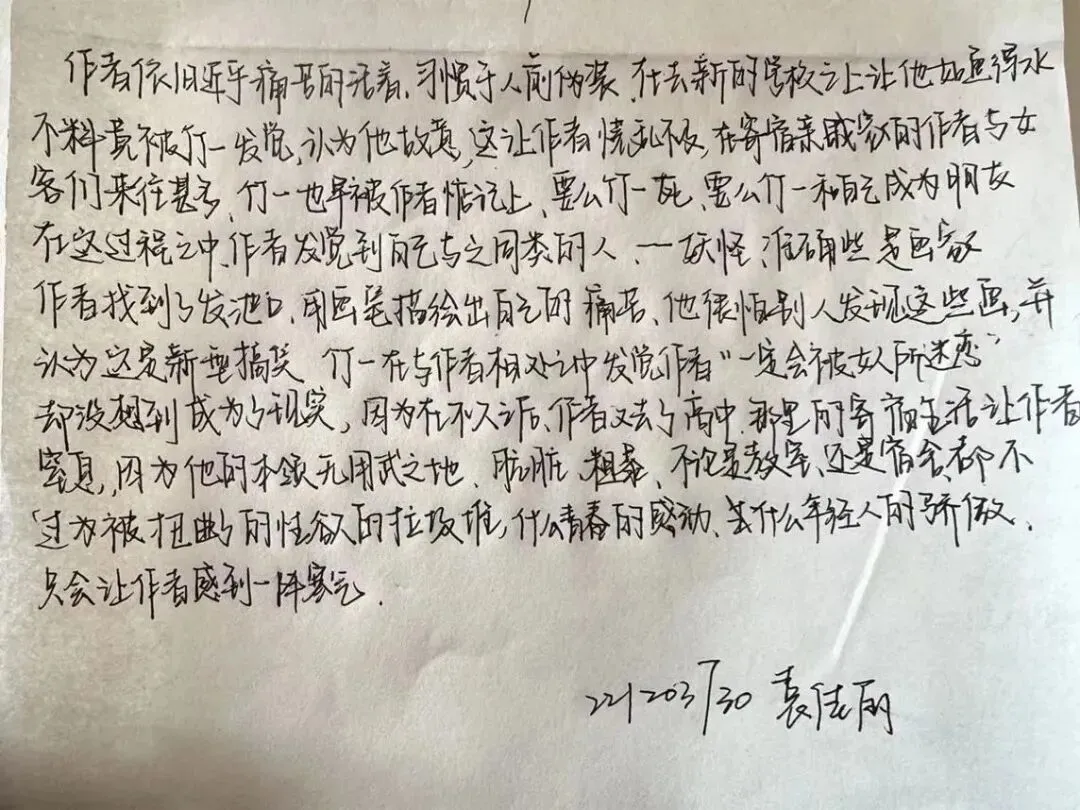 作者依旧近乎痛苦的活着、习惯于人前伪装、在去新的学校之上让他如鱼得水
不料竟被竹一发觉,认为他故意,这让作者慌乱不及,在寄宿亲戚家的作者与女
客们来往甚多、竹一也早被作者惦记上、要么竹一死、要么竹一和自己成为朋友
在这过程之中、作者发觉到自己与之同类的人、一妖怪、准确些是画家
作者找到了发泄口、用画笔描绘出自己的痛苦、他很怕别人发现这些画,并
认为这是新型搞笑 竹一在与作者相处之中发觉作者“一定会被女人所迷恋”
却没想到成为了现实,因为在不久之后、作者又去了高中、那里的寄宿生活让作者
窒息,因为他的本领无用武之地、肮脏、粗暴、不论是教室、还是宿舍、都不
过为被扭曲了的性欲的垃圾堆,什么青春的感动、去什么年轻人的骄傲、
只会让作者感到一阵寒气.
221203730 袁佳丽